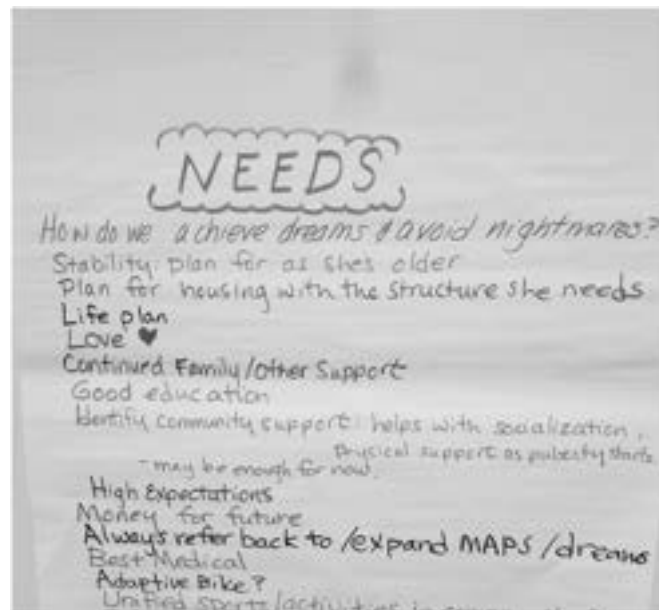 NEEDS
How do we achieve dreams & avoid nightmares?
Stability: plan for as shes older
Plan for housing with the structure she needs
Life plan
Love ♥
Continued Family/Other Support
Good education
Identify community support: helps with socialization,
physical support as puberty starts
- may be enough for now.
High Expectations
Money for future
Always refer back to /expand MAPS /dreams
Best Medical
Adaptive Bike?
Unified sports/activities